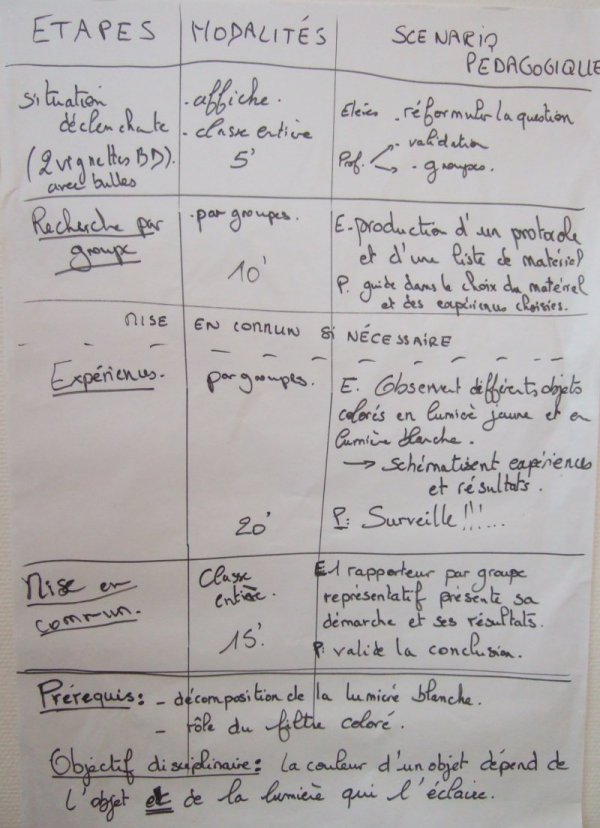 ETAPES
MODALITÉS
SCENARIO
PEDAGOGIQUE
situation
déclenchante
(2 vignettes BD).
avec bulles
- affiche.
- classe entière
5'
Elèves - réformuler la question
Prof. - validation
- groupes.
Recherche par
groupe
- par groupes.
10'
E - production d'un protocole
et d'une liste de matériel
P. guide dans le choix du matériel
et des expériences choisies.
MISE EN COMMUN SI NÉCESSAIRE
Expériences.
par groupes.
20'
E. Observent différents objets
colorés en lumière jaune et en
lumière blanche.
→ schématisent expériences
et résultats.
P: Surveille!!!...
Mise en
commun.
Classe
entière.
15'
E 1 rapporteur par groupe
représentatif présente sa
démarche et ses résultats.
P: valide la conclusion.
Prérequis: - décomposition de la lumière blanche.
- rôle du filtre coloré.
Objectif disciplinaire: la couleur d'un objet dépend de
l'objet et de la lumière qui l'éclaire.